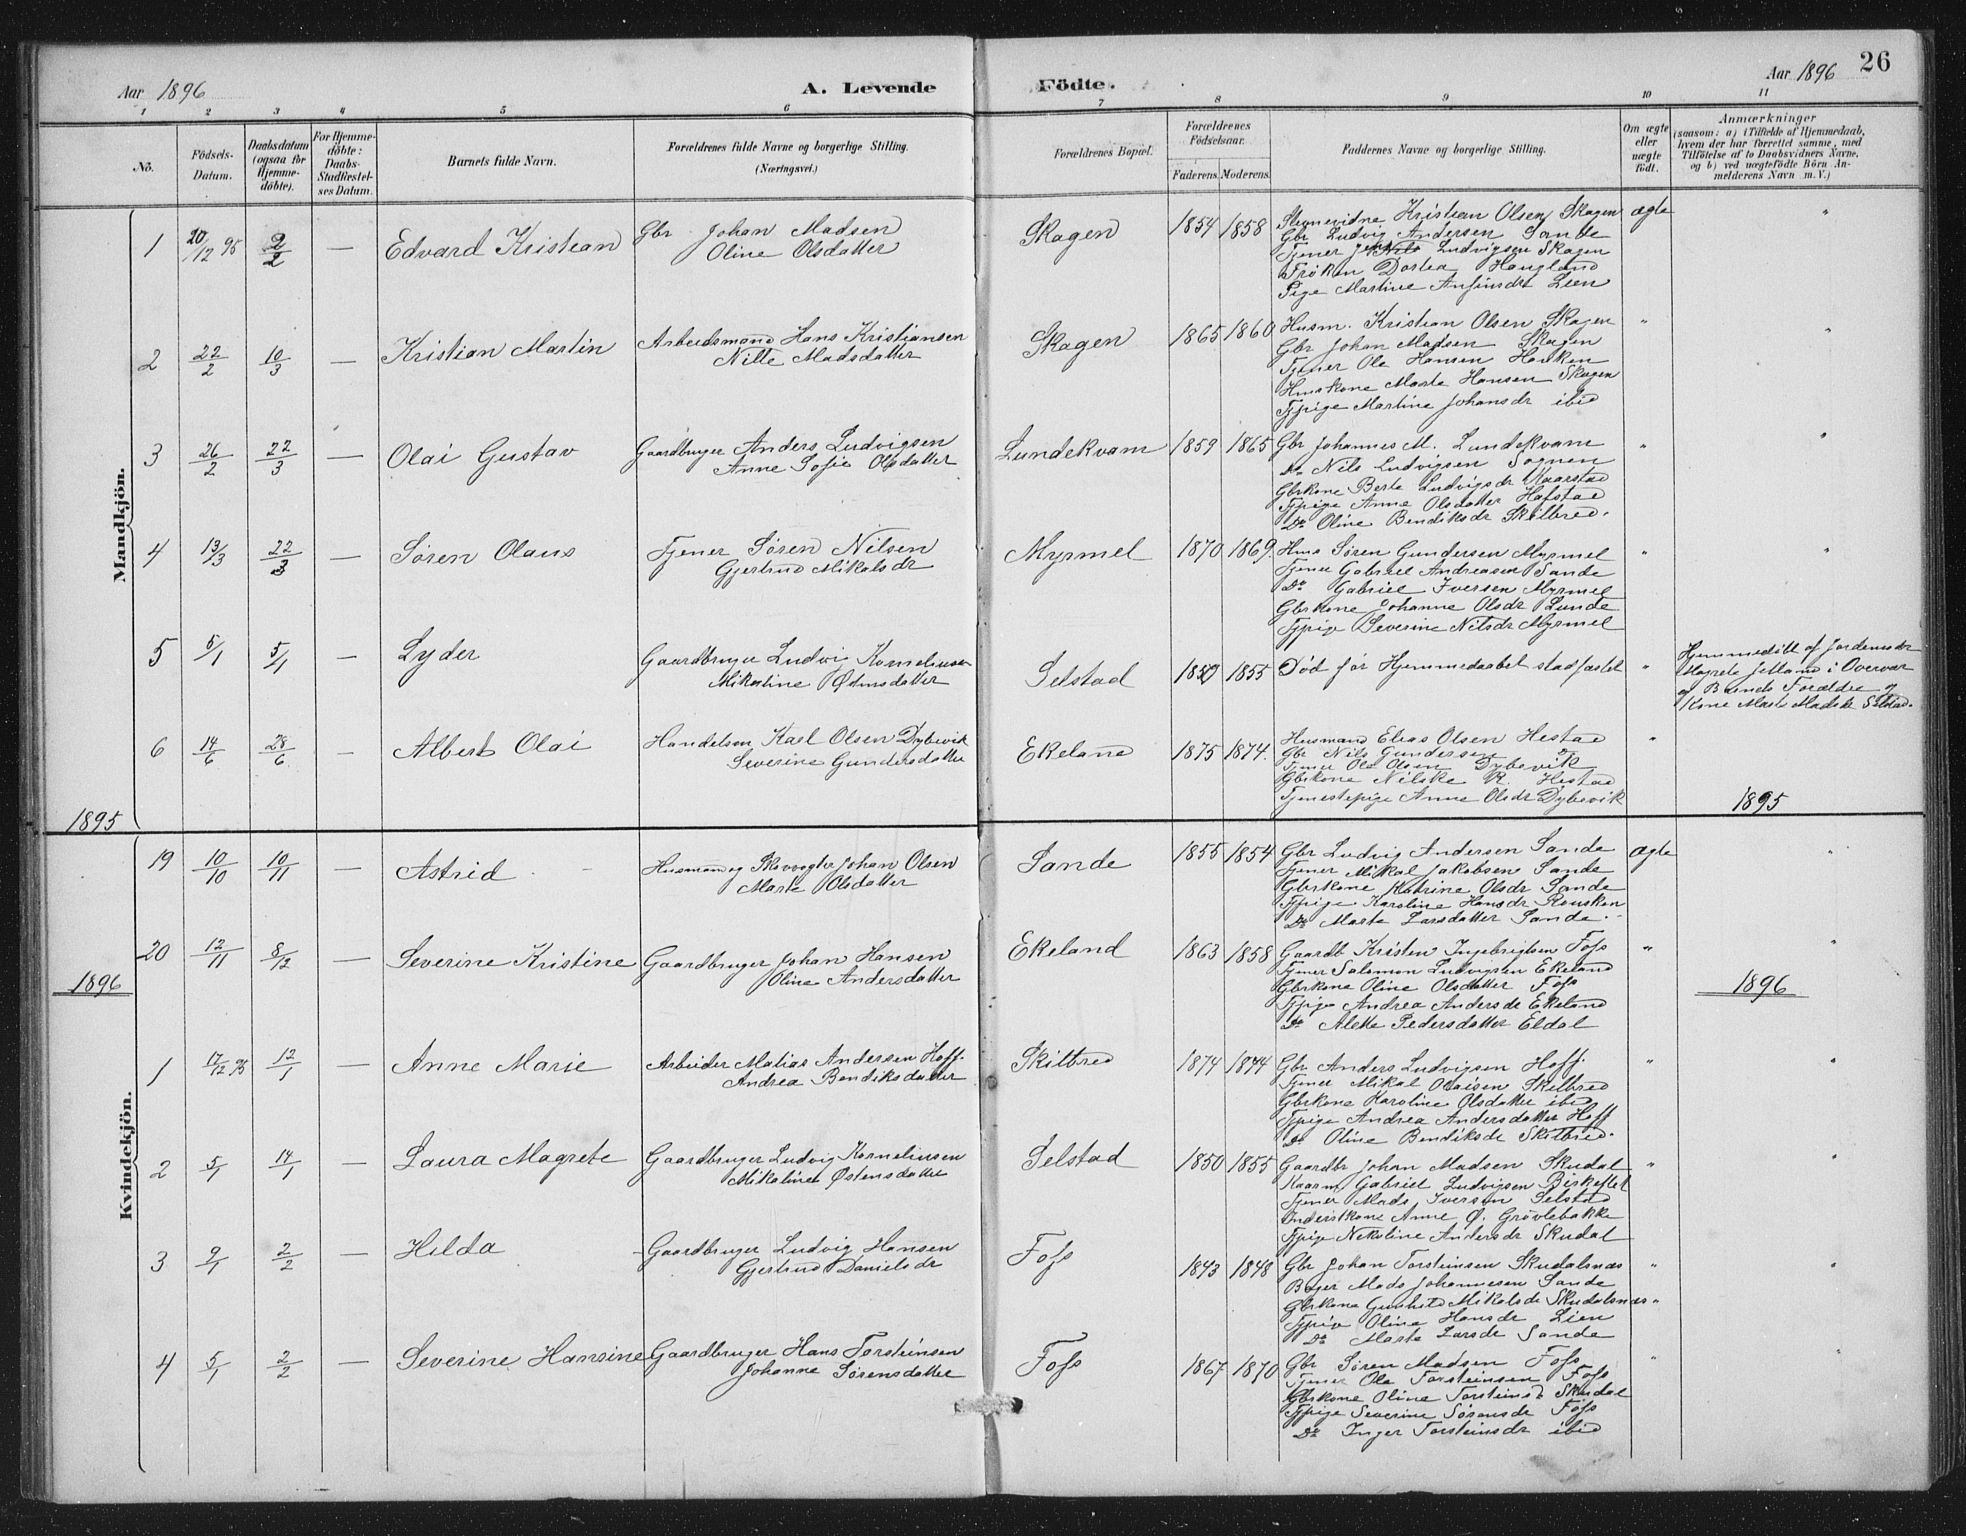 Aar 1896
A. Levende Födte.
Aar 1896 26
1 2 3 4 5 6 7 8 9 10 11
No.
Födsels-Datum.
Daabsdatum (ogsaa for Hjemme-döbte).
For Hjemme-döbte: Daabs-Stadfæstel-ses Datum.
Barnets fulde Navn.
Forældrenes fulde Navne og borgerlige Stilling.
(Næringsvei.)
Forældrenes Bopæl.
Forældrenes Födselsaar.
Faderens. Moderens.
Faddernes Navne og borgerlige Stilling.
Om ægte eller uægte födt.
Anmærkninger
(saasom: a) i Tilfælde af Hjemmedaab,
hvem der har forrettet samme, med
Tilföielse af to Daabsvidners Navne,
og b) ved uægtefödte Börn An-
melderens Navn m. V.)
Mandkjön.
1 20/12 95 2/2 — Edvard Kristian
Gbr Johan Madsen
Oline Olsdatter
Skagen 1854 1858
Stevnevidne Kristian Olsen Skagen
Gbr Ludvig Andersen Sande
Tjener Ludvigsen Skagen
Frøken Dortea Haugland
Pige Martine Anfinsdt Lien
ægte "
2 22/2 10/3 — Kristian Martin
Arbeidsmand Hans Kristiansen
Nille Madsdatter
Skagen 1865 1860
Husm. Kristian Olsen Skagen
Gbr Johan Madsen Skagen
Tjener Ole Hansen Hauken
Huskone Marte Hansen Skagen
Tjpige Martine Johansdr ibid
" "
3 26/2 22/3 — Olai Gustav
Gaardbruger Anders Ludvigsen
Anne Sofie Olsdatter
Lundekvam 1859 1865
Gbr Johannes M. Lundekvam
Do Nils Ludvigsen Sognen
Gbrkone Berte Ludvigsdr Kaarstad
Tjpige Anne Olsdatter Hafstad
Do Oline Bendiksdr Skilbred.
" "
4 13/3 22/3 — Søren Olaus
Tjener Søren Nilsen
Gjertrud Mikalsdr
Myrmel 1870 1869.
Hus Søren Gundersen Myrmel
Tjener Gabriel Andreasen Sande
Do Gabriel Iversen Myrmel
Gbrkone Johanne Olsdr Lunde
Tjpige Severine Nilsdr Myrmel
" "
5 5/1 5/1 — Lyder
Gaardbruger Ludvig Korneliusen
Mikaline Østensdatter
Selstad 1850 1855
Død før Hjemmedaabet stadfæstet "
Hjemmedöbt af Jordemdr
Magrete Jetland i Overvær
af Barnets Forældre og
Kone Marte Madsdr Selstad.
6 14/6 28/6 — Albert Olai
Handelsm Karl Olsen Dybevik
Severine Gundersdatter
Ekeland 1875 1874.
Husmand Elias Olsen Hestad
Gbr Nils Gundersen Do
Tjener Ole Olsen Dybevik
Gbrkone Nilske R. Hestad
Tjenestepige Anne Olsdr Dybevik
"
1895 1895
Kvindekjön.
19 10/10 10/11 — Astrid
Husmand og Skovvogter Johan Olsen
Marte Olsdatter
Sande 1855 1854
Gbr Ludvig Andersen Sande
Tjener Mikal Jakobsen Sande
Gbrkone Katrine Olsdr Sande
Tjpige Karoline Hansdr Rousken
Do Marte Larsdatter Sande.
ægte "
20 12/11 8/12 — Severine Kristine
Gaardbruger Johan Hansen
Oline Andersdatter
Ekeland 1863 1858
Gaardb Kristen Ingebrigtsen Fofs
Tjener Salomon Ludvigsen Ekeland
Gbrkone Oline Olsdatter Fofs
Tjpige Andrea Andersdr Ekeland
Do Alette Pedersdatter Eldal
" "
1896 1896
1 17/12 95 12/1 — Anne Marie
Arbeider Matias Andersen Hoff.
Andrea Bendiksdatter
Skilbred 1874 1874
Gbr Anders Ludvigsen Hoff.
Tjener Mikal Olaisen Skilbred
Gbrkone Karoline Olsdatter ibid
Tjpige Andrea Andersdatter Hoff
Do Oline Bendiksdr Skilbred.
" "
2 5/1 14/1 — Laura Magrete
Gaardbruger Ludvig Korneliusen
Mikaline Østensdatter
Selstad 1850 1855
Gaardbr Johan Madsen Skudal
Kaarm Gabriel Ludvigsen Birkeflet
Tjener Mads Iversen Selstad
Inderstkone Anne Ø. Grövlebakke
Tjpige Nekoline Andersdr Skudal
" "
3 9/1 2/2 — Hilda
Gaardbruger Ludvig Hansen
Gjertrud Danielsdr
Fofs 1843 1848
Gbr Johan Torsteinsen Skudalsnæs
Bager Mads Johannesen Sande
Gbrkone Gunhild Mikalsdr Skudalsnæs
Tjpige Oline Hansdr Lien
Do Marte Larsdr Sande
" "
4 5/1 2/2 — Severine Hansine
Gaardbruger Hans Torsteinsen
Johanne Sørensdatter
Fofs 1867 1870
Gbr Søren Madsen Fofs
Tjener Ole Torsteinsen Fofs
Gbrkone Oline Torsteinsd Skudal
Tjpige Severine Sørensdr Fofs
Do Inger Torsteinsdr ibid
" "